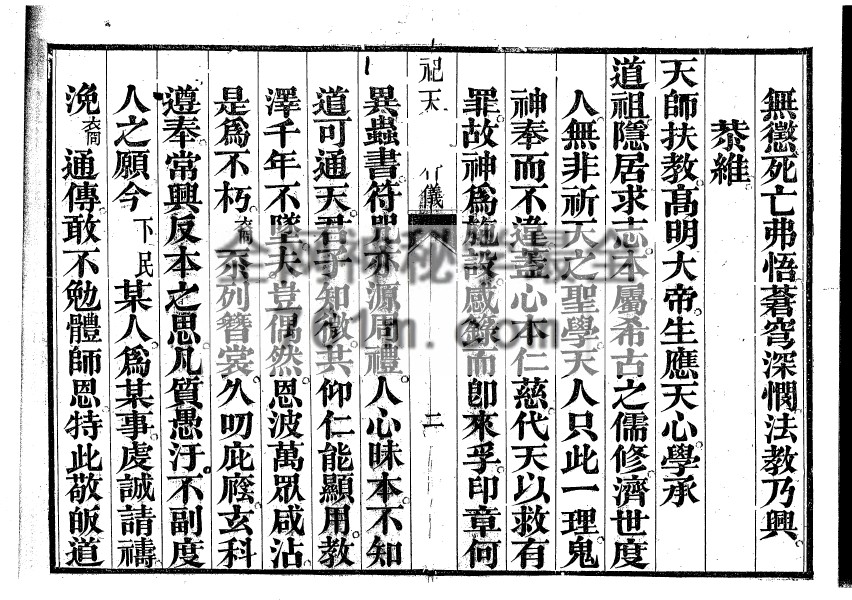 無懲死亡弗悟蒼穹深憫法教乃興
恭維
天師扶教高明大帝生應天心學承
道祖隱居求志本屬希古之儒修濟世度
人無非祈天之聖學天人只此一理鬼
神奉而不違蓋心本仁慈代天以救有
罪故神為施設感錄而卽來孚印章何
祀天 行儀 二
異蟲書符咒亦源周禮人心昧本不知
道可通天君子知微共仰仁能顯用教
澤千年不墜夫豈偶然恩波萬眾咸沾
是為不朽裔忝列簪裳久叨庇廕玄科
遵奉常興反本之思凡質愚汙不副度
人之願今下民某人為某事虔誠請禱
浼裔通傳敢不勉體師恩特此敬皈道
761m.com